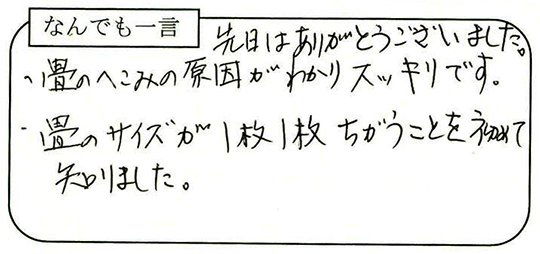 なんでも一言
先日はありがとうございました。
・畳のへこみの原因がわかりスッキリです。
・畳のサイズが1枚1枚ちがうことを初めて
知りました。